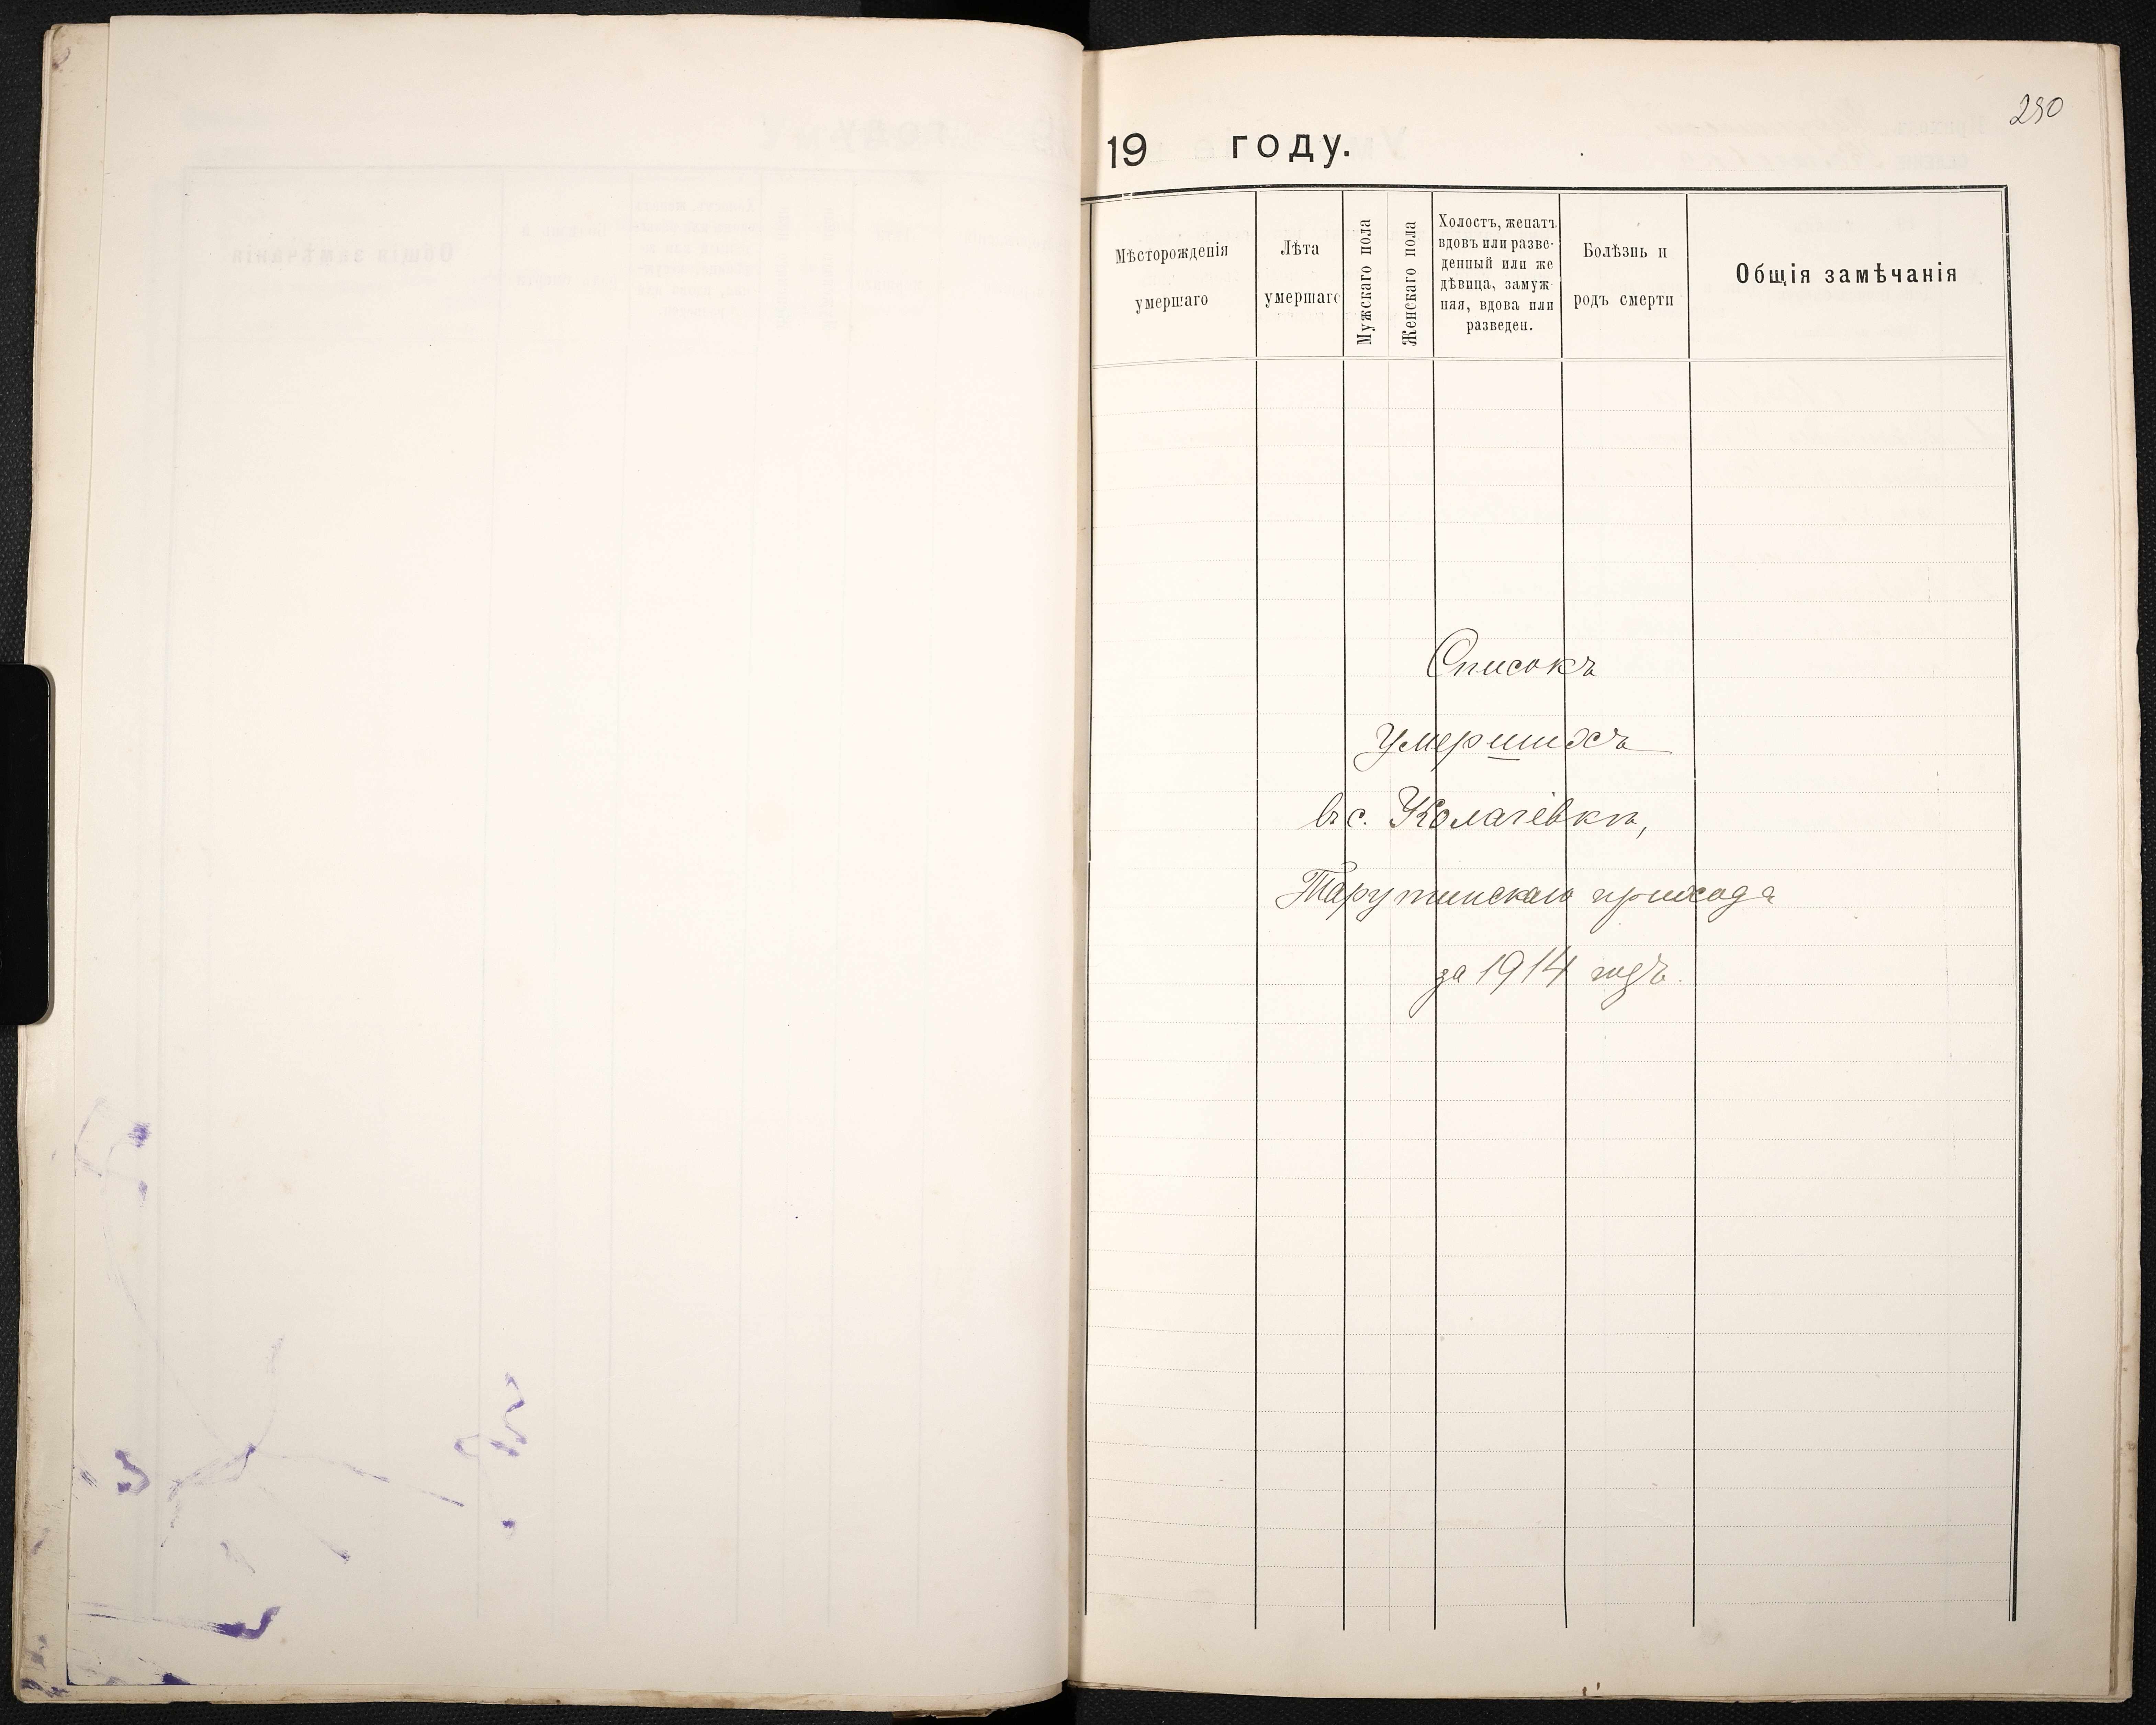 290
19 году.
Мѣсторожденія
умершаго
Лѣта
умершаго
Мужскаго пола
Женскаго пола
Холостъ, женатъ
вдовъ или разве-
денный или же
дѣвица, замуж
няя, вдова или
разведен.
Болѣзнь и
родъ смерти
Общія замѣчанія
Списокъ
умершихъ
въ с. Колачевкѣ,
Тарутинскаго прихода
за 1914 годъ.